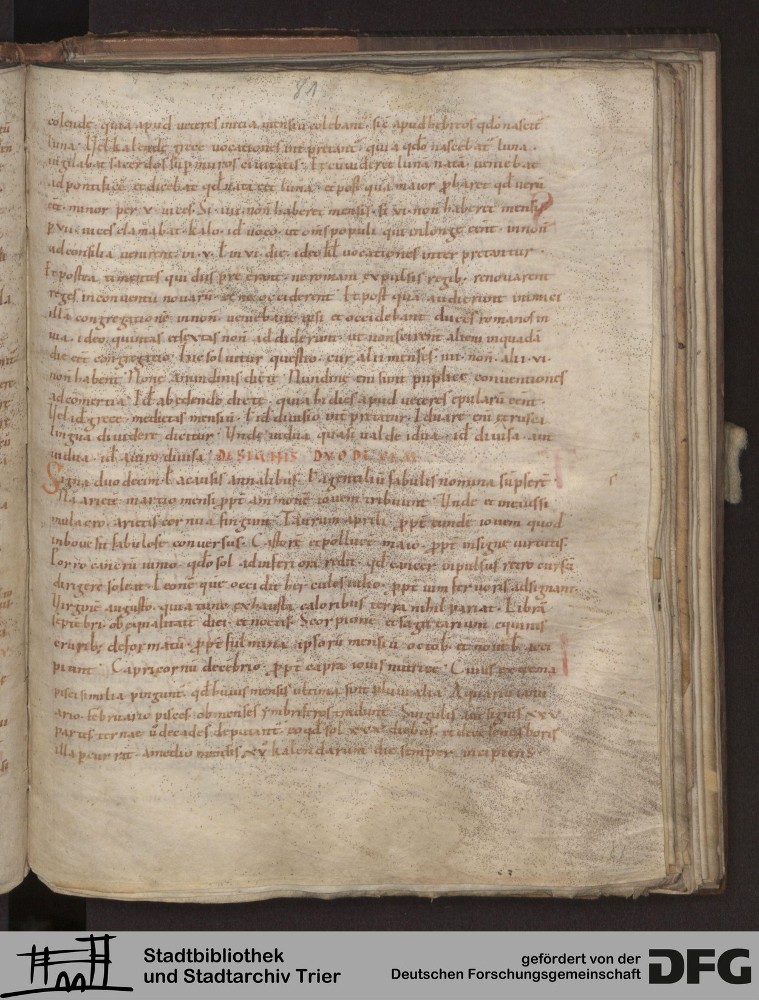 81
colende. quia apud veteres initia mensiū colebant. sic apud hebreos qdo nascit
luna. Vel kalende grece vocationes int pretant. quia qdo nascebat luna.
vigilabat sacerdos sup muros civitatis. Et cū videret lunā natā. veniebat
ad pontificē. et dicebat qd nata eēt luna. et post quā maior pbaret qd verū
eēt. minor per v. vices. Si iiii. non haberet mensis. si vi. non haberet mensis
p vii. vices clamabat. kalo. id voco. ut oms populi qui in longe eent. in non
ad consilia venirent. in v. l in vi. die. ideo vocationes inter pretantur.
Et postea timentes qui diis pre erant. ne romani expulsis regib. renovarent
reges in conventū novarū. et ne occiderent. Et post quā audierunt inimici
illā congregationē in non. veniebant ipsi et occidebant duces romanos in
via. ideo quintas et sextas non addiderunt. ut non scirent alieni in quadā
die eēt congregatio. Hic solvitur questio. cur alii menses. iiii. non. alii. vi.
non habent. None a nundinis dicte. Nundine eni sunt puplice conventiones
ad comertia. Id ab edendo dicte. quia hi dies apud veteres epularū eent.
Vel id grece medietas mensiū. l id divisio int pretatur. Iduare enī etrusci
lingua dividere dicitur. Unde vidua quasi valde idua. id divisa. aut
vidua. id a viro divisa. DE SIGNIS DUODECIM
Signa duodecim l a causis annalibus. l a gentiliū fabulis nomina sūpsert.
Nā arietē martio mensi. ppt amonē iovem tribuunt. Unde et in eius si
mulacro. arietis cornua fingunt. Taurum aprili. ppt eundē iovem quod
in bove sit fabulose conversus. Castorē et pollucē maio. ppt insigne virtutis.
Porro cancrū iunio. qdo sol ad inferiora redit. qd cancer inpulsus retro cursū
dirigere soleat. Leonē quē occidit hercules iulio. ppt vim fervoris adsignant.
Virginē augusto. quia tunc exhausta caloribus terra nihil pariat. Librā
septēbri. ob equalitatē diei et noctis. Scorpionē et sagittarium equinis
cruribꝫ deformatū. ppt fulmina ipsorū mensiū octob. et novēb. acci
piunt. Capricornū decēbrio. ppt caprā iovis nutricē. Cuius extrema
pisci similia pingunt. qd huius mensis ultima sint pluvialia. Aquariū ianu
ario. februario pisces. ob menses ymbriferos tradunt. Singulis autē signis xxx.
partes. ternas u decades deputant. eo qd sol xxx. diebus. et decē semis horis
illa peurrat. a medio mensis xv kalendarum die semper incipiens.
Stadtbibliothek
und Stadtarchiv Trier
gefördert von der
Deutschen Forschungsgemeinschaft
DFG